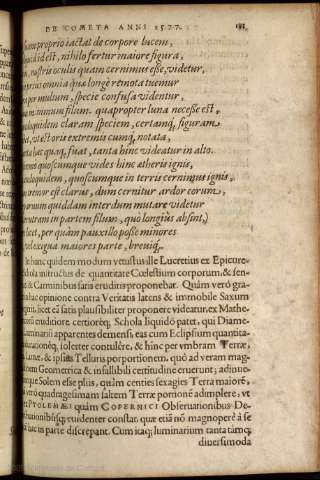 DE COMETA ANNI 1577.
proprio iactat de corpore lucem,
id est, nihilo fertur maiore figura,
nostris oculis quam cernimus esse, videtur,
prius omnia quæ longè remota tuemur
per multum, specie confusa videntur,
minimum filum. quapropter luna necesse est,
claram speciem, certamq́, figuram
vt est oris extremis cunq́, notata,
hæc quaq́, fuat, tanta hinc videatur in alto.
quoscumque vides hinc ætheris ignis,
quoscumque in terris cernimus ignis,
tremor est clarus, dum cernitur ardor eorum,
quiddam interdum mutare videtur
in partem filum, quò longiùs absint,)
licet, per quàm pauxillo posse minores
exigua maiores parte, breuiq́.
hunc quidem modum vetustus ille Lucretius ex Epicure-
schola instructus de quantitate Cœlestium corporum, & sen-
& Carminibus satis eruditis proponebat. Quàm verò gra-
hac opinione contra Veritatis latens & immobile Saxum
licet ea satis plausibiliter proponere videatur, ex Mathe-
eruditione certioreq́; Schola liquidò patet, qui Diame-
luminarium apparentes demensi, eas cum Eclipsium quantita-
solerter contulêre, & hinc per vmbram Terræ,
Lunæ, & ipsius Telluris porportionem, quò ad veram mag-
Geometrica & infallibili certitudine eruerunt; adinue-
Solem esse plus, quàm centies sexagies Terra maiorē,
verò quadragesimam saltem Terræ portionē adimplere, vt
PTOLEMÆI quàm COPERNICI Obseruationibus De-
euidenter constat, quæ etiā nō magnoperè à se
hac in parte discrepant. Cum itaq; luminarium tanta tamq;
diuersimoda